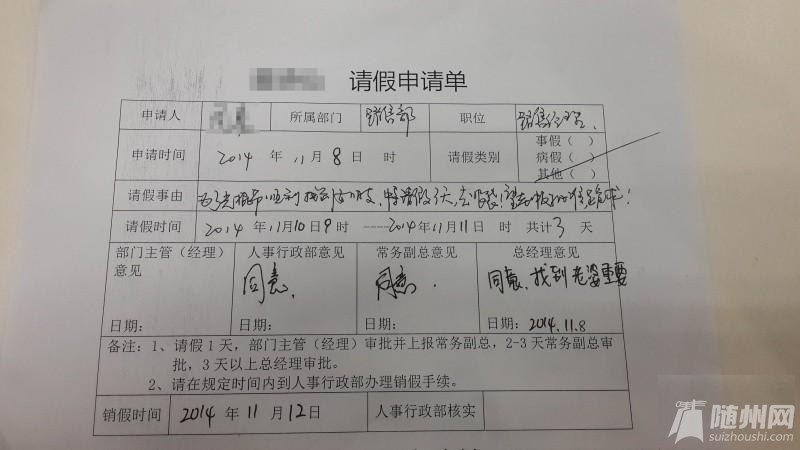 请假申请单
申请人 所属部门 销售部 职位 销售经理
申请时间 2014 年 11月 8日 时 请假类别 事假( )
病假( )
其他( )
请假事由 特请假3天,去
请假时间 2014 年11月10日9时 ----2014年11月11日 时 共计3天
部门主管(经理)意见 人事行政部意见 常务副总意见 总经理意见
同意. 同意. 同意,找到老婆重要
日期: 日期: 日期: 日期: 2014.11.8
备注:1、请假1天,部门主管(经理)审批并上报常务副总,2-3天常务副总审
批,3天以上总经理审批。
2、请在规定时间内到人事行政部办理销假手续。
销假时间 2014 年 11 月 12日 人事行政部核实
随州网
suizhoushi.com